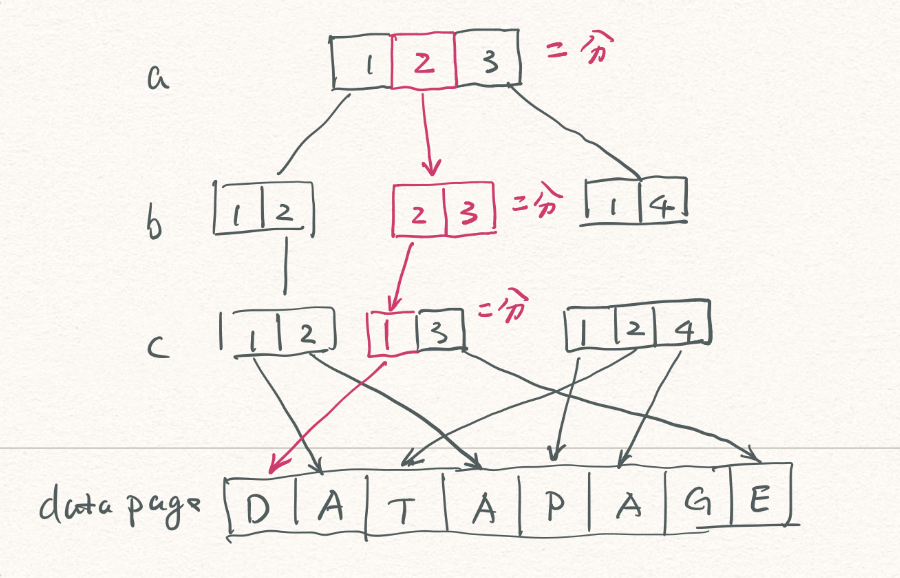 a 1 2 3 二分
b 1 2 2 3 二分 1 4
c 1 2 1 3 二分 1 2 4
data page D A T A P A G E